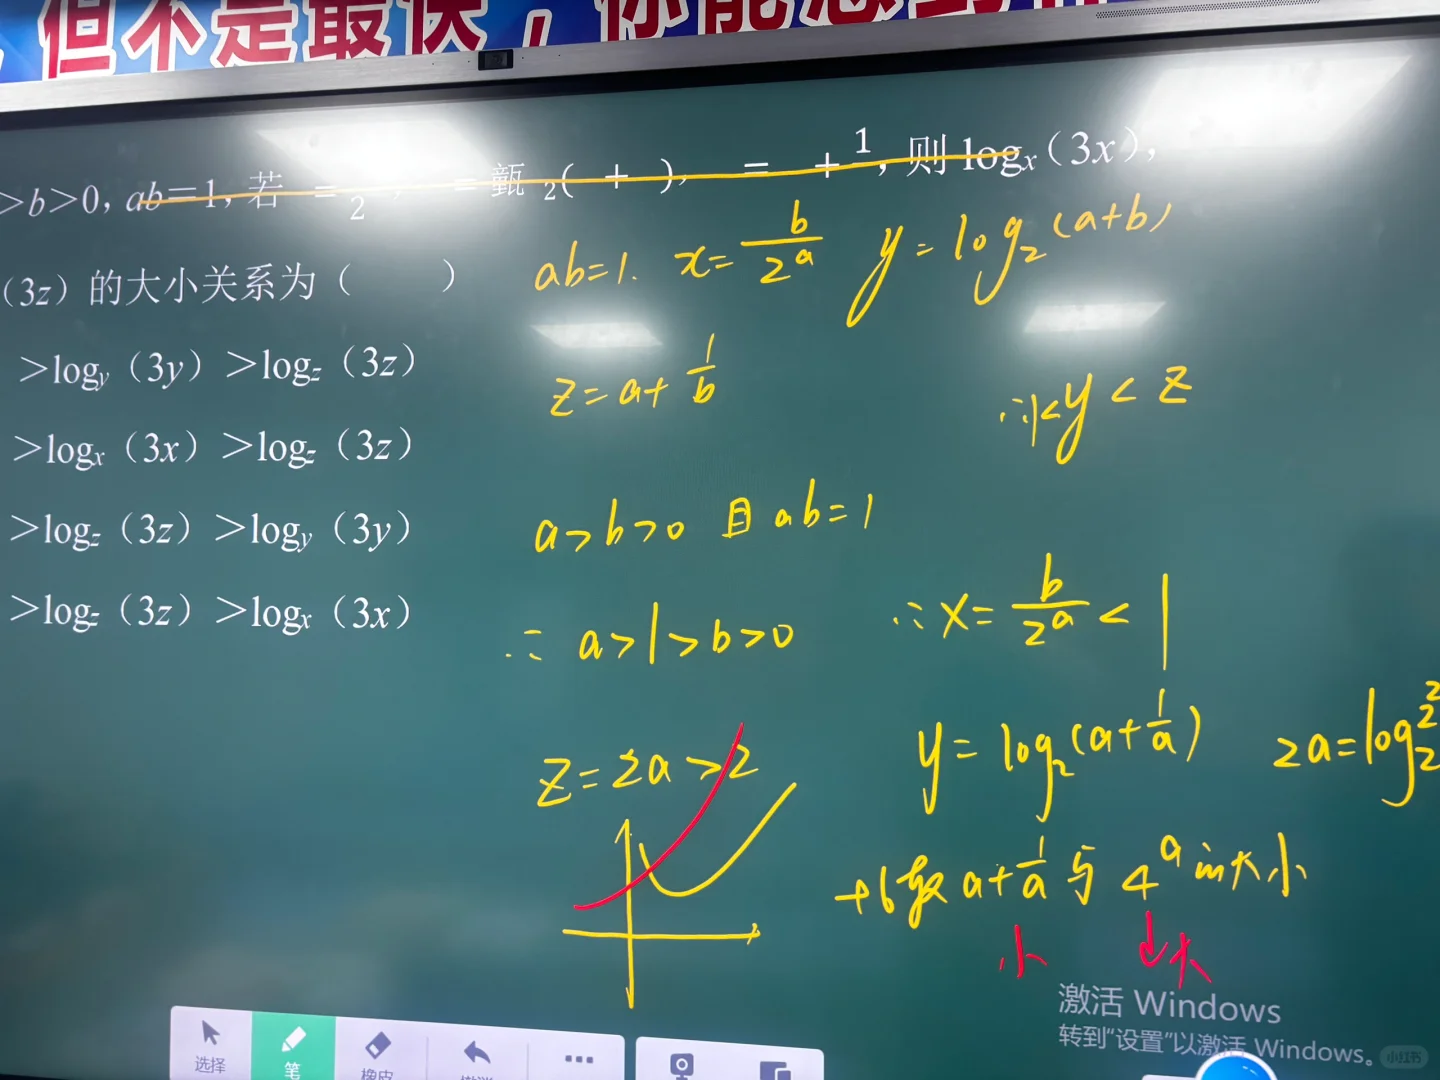 但不是最快，你能
>b>0, ab=1, 若 = 2 , = 甄 2( + ), = + 1 , 则 logx（3x），
（3z）的大小关系为（ ）
>logy（3y）>logz（3z）
>logx（3x）>logz（3z）
>logz（3z）>logy（3y）
>logz（3z）>logx（3x）
ab=1. x=b/2^a y=log₂(a+b)
z=a+1/b
∴1<y<z
a>b>0 且ab=1
∴ a>1>b>0
∴x=b/2^a<1
z=2a>2
y=log₂(a+1/a) 2a=log₂2²
比较a+1/a与4^a的大小
小 大
激活 Windows
转到"设置"以激活 Windows。
选择
笔
橡皮
小红书